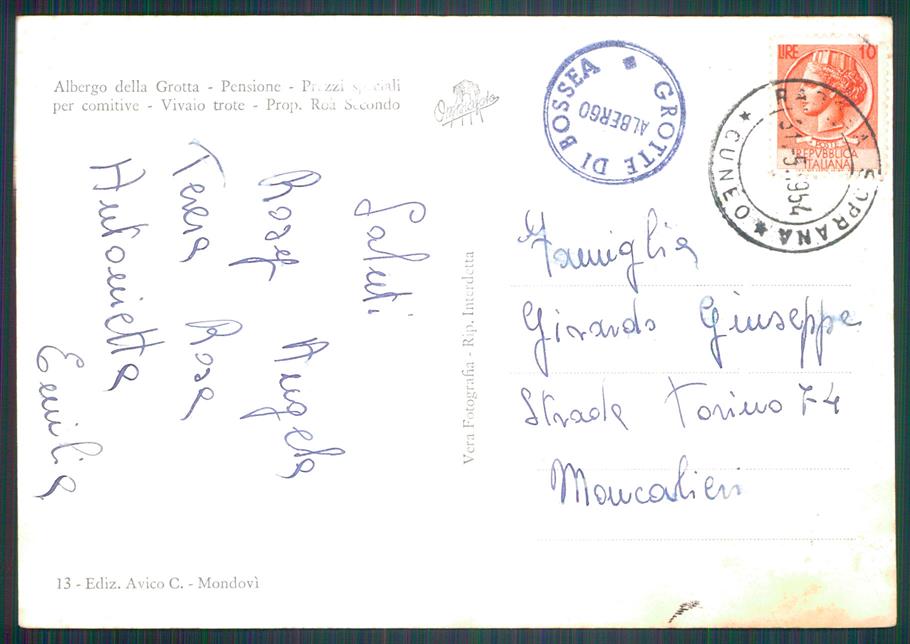 Albergo della Grotta - Pensione - Prezzi speciali
per comitive - Vivaio trote - Prop. Roà Secondo
Saluti
Rosef Angela
Teresa Rosa
Antonietta
Emilia
13 - Ediz. Avico C. - Mondovì
Vera Fotografia - Rip. Interdetta
GROTTE DI BOSSEA
ALBERGO
LIRE 10
POSTE
REPVBBLICA
ITALIANA
SOPRANA
CUNEO
Famiglia
Girardo Giuseppe
Strada Torino 74
Moncalieri